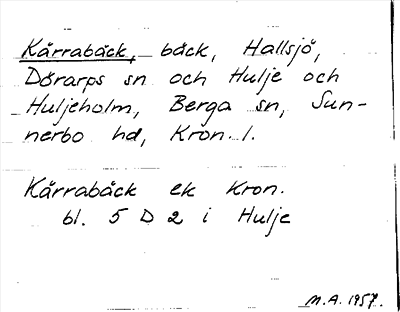 Kårrabäck, bäck, Hallsjö,
Dörarps sn och Hulje och
Huljeholm, Berga sn, Sun-
nerbo hd, Kron. l.
Kårrabäck ek Kron.
bl. 5 D 2 i Hulje
M.A. 1957.